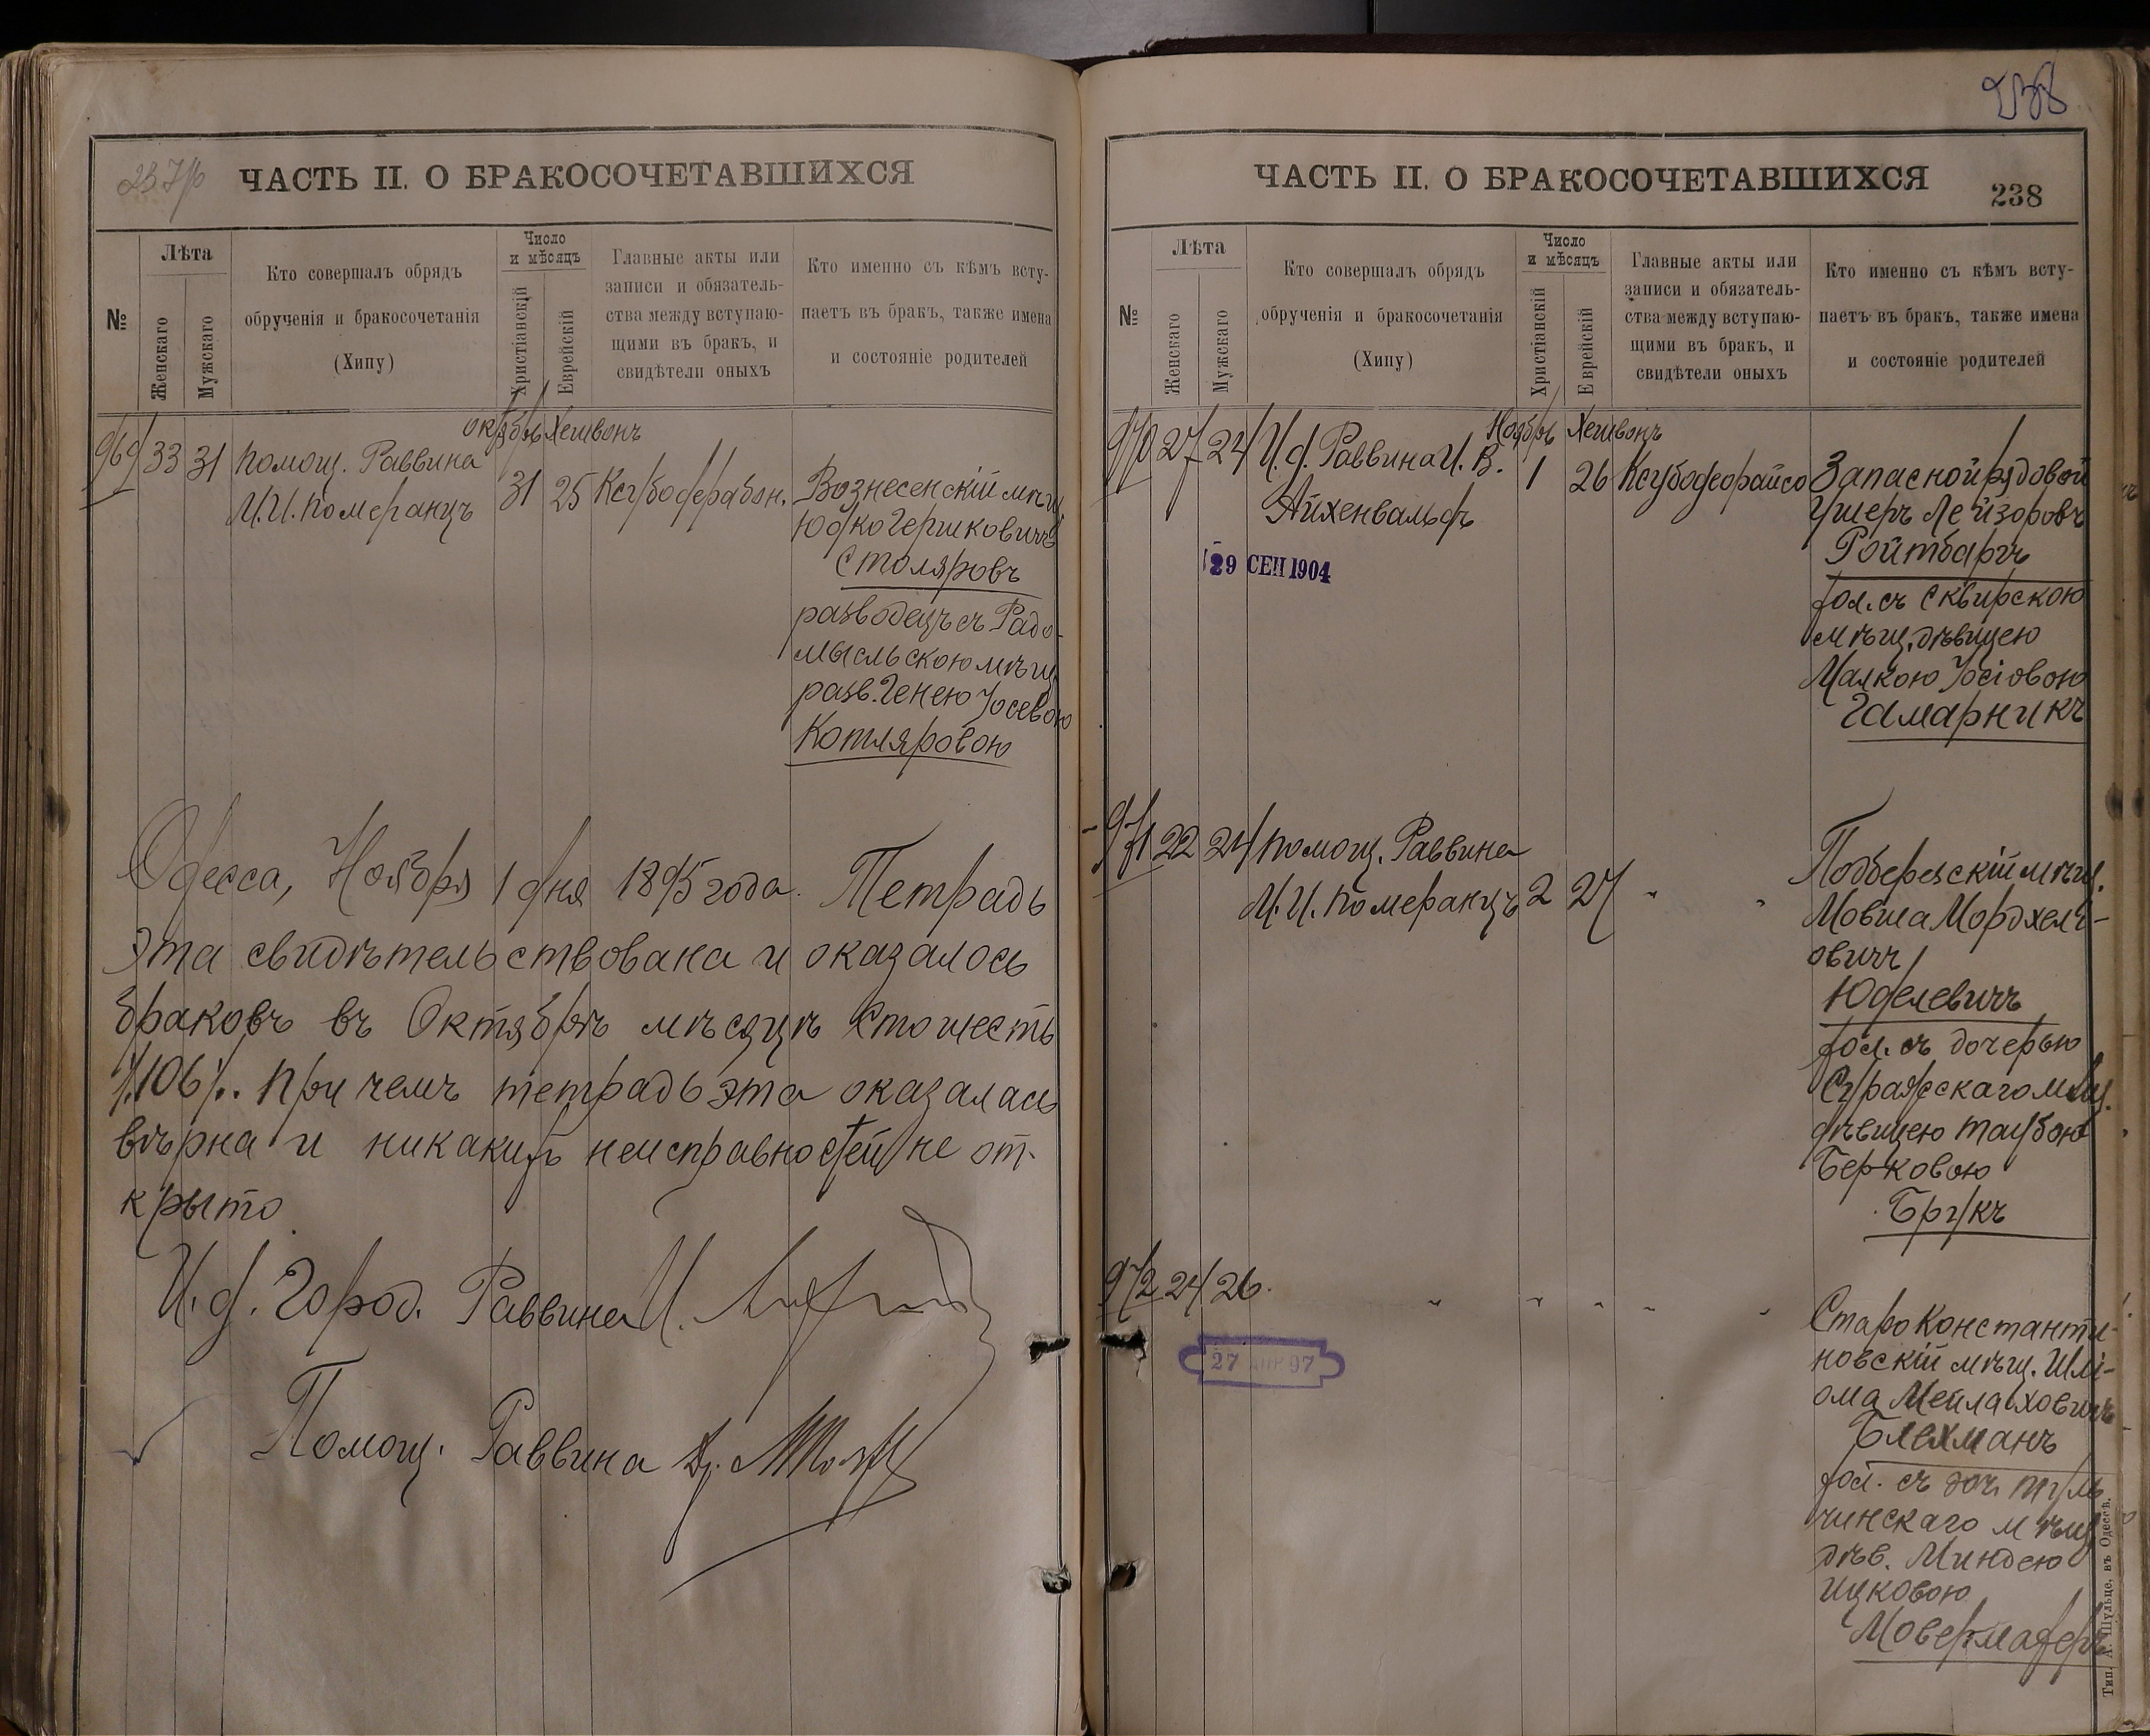 238
ЧАСТЬ II. О БРАКОСОЧЕТАВШИХСЯ
№
Лѣта
Женскаго
Мужскаго
Кто совершалъ обрядъ
обрученія и бракосочетанія
(Хипу)
Число
и мѣсяцъ
Христіанскій
Еврейскій
Главные акты или
записи и обязатель-
ства между вступаю-
щими въ бракъ, и
свидѣтели оныхъ
Кто именно съ кѣмъ всту-
паетъ въ бракъ, также имена
и состояніе родителей
Октябрь Хешвонъ
969 33 31 Помощ. Раввина
М. И. Померанцъ
31 25
Вознесенскій мѣщ.
Юдко Гершковичъ
Столяровъ
разводецъ съ Радо-
мысльскою мѣщ.
разв. Генею Іосевою
Котляровою
Одесса, Ноября 1 дня 1895 года. Тетрадь
эта свидѣтельствована и оказалось
браковъ въ Октябрѣ мѣсяцѣ сто шесть
/.106/. При чемъ тетрадь эта оказалась
вѣрна и никакихъ неисправностей не от-
крыто
И. д. Город. Раввина
Помощ. Раввина
ЧАСТЬ II. О БРАКОСОЧЕТАВШИХСЯ
238
№
Лѣта
Женскаго
Мужскаго
Кто совершалъ обрядъ
обрученія и бракосочетанія
(Хипу)
Число
и мѣсяцъ
Христіанскій
Еврейскій
Главные акты или
записи и обязатель-
ства между вступаю-
щими въ бракъ, и
свидѣтели оныхъ
Кто именно съ кѣмъ всту-
паетъ въ бракъ, также имена
и состояніе родителей
Ноябрь Хешвонъ
970 27 24 И. д. Раввина И. В.
Айхенвальдъ
1 26
29 СЕП 1904
Запасной рядовой
Ушеръ Лейзоровъ
Ройтбаргъ
хол. съ Сквирскою
мѣщ. дѣвицею
Малкою Іосіовою
Гамарникъ
971 22 24 Помощ. Раввина
М. И. Померанцъ 2 27 " "
Подберезскій мѣщ.
Мовша Мордхел-
овичъ
Юделевичъ
хол. съ дочерью
мѣщ.
дѣвицею Таубою
Берковою
Брукъ
972 24 26. " " " " "
27 АПР 97
Староконстанти-
новскій мѣщ. Шлі-
ома Мейлаховичъ
Блехманъ
хол. съ доч. Туль-
чинскаго мѣщ.
дѣв. Миндею
Ицковою
Тип. А. Шульце, въ Одессѣ.